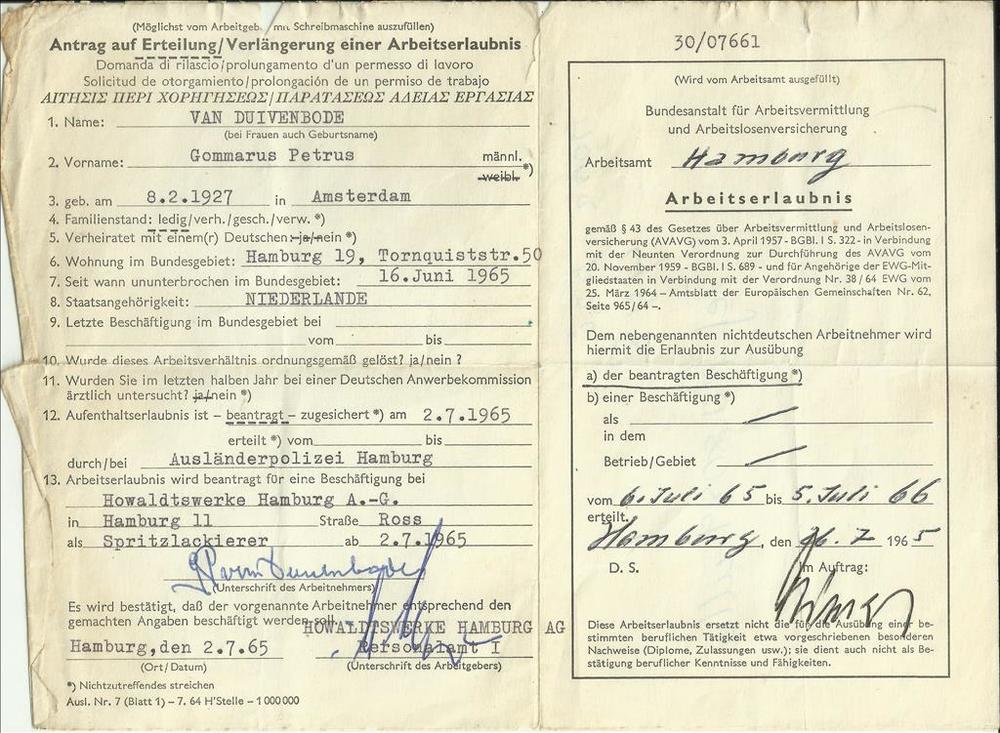 (Möglichst vom Arbeitgeb. mit Schreibmaschine auszufüllen)
Antrag auf Erteilung/Verlängerung einer Arbeitserlaubnis
Domanda di rilascio/prolungamento d'un permesso di lavoro
Solicitud de otorgamiento/prolongación de un permiso de trabajo
ΑΙΤΗΣΙΣ ΠΕΡΙ ΧΟΡΗΓΗΣΕΩΣ/ΠΑΡΑΤΑΣΕΩΣ ΑΔΕΙΑΣ ΕΡΓΑΣΙΑΣ
1. Name: VAN DUIVENBODE
(bei Frauen auch Geburtsname)
2. Vorname: Gommarus Petrus männl.
weibl. *)
3. geb. am 8.2.1927 in Amsterdam
4. Familienstand: ledig/verh./gesch./verw. *)
5. Verheiratet mit einem(r) Deutschen: ja/nein *)
6. Wohnung im Bundesgebiet: Hamburg 19, Tornquiststr.50
7. Seit wann ununterbrochen im Bundesgebiet: 16.Juni 1965
8. Staatsangehörigkeit: NIEDERLANDE
9. Letzte Beschäftigung im Bundesgebiet bei
vom bis
10. Wurde dieses Arbeitsverhältnis ordnungsgemäß gelöst? ja/nein ?
11. Wurden Sie im letzten halben Jahr bei einer Deutschen Anwerbekommission
ärztlich untersucht? ja/nein *)
12. Aufenthaltserlaubnis ist – beantragt – zugesichert *) am 2.7.1965
erteilt *) vom bis
durch/bei Ausländerpolizei Hamburg
13. Arbeitserlaubnis wird beantragt für eine Beschäftigung bei
Howaldtswerke Hamburg A.-G.
in Hamburg 11 Straße Ross
als Spritzlackierer ab 2.7.1965
(Unterschrift des Arbeitnehmers)
Es wird bestätigt, daß der vorgenannte Arbeitnehmer entsprechend den
gemachten Angaben beschäftigt werden soll.
HOWALDTSWERKE HAMBURG AG
Hamburg,den 2.7.65 Personalamt I
(Ort/Datum) (Unterschrift des Arbeitgebers)
*) Nichtzutreffendes streichen
Ausl. Nr. 7 (Blatt 1) – 7. 64 H'Stelle – 1 000 000
30/07661
(Wird vom Arbeitsamt ausgefüllt)
Bundesanstalt für Arbeitsvermittlung
und Arbeitslosenversicherung
Arbeitsamt Hamburg
Arbeitserlaubnis
gemäß § 43 des Gesetzes über Arbeitsvermittlung und Arbeitslosen-
versicherung (AVAVG) vom 3. April 1957 - BGBl. I S. 322 - in Verbindung
mit der Neunten Verordnung zur Durchführung des AVAVG vom
20. November 1959 - BGBl. I S. 689 - und für Angehörige der EWG-Mit-
gliedstaaten in Verbindung mit der Verordnung Nr. 38/64 EWG vom
25. März 1964 – Amtsblatt der Europäischen Gemeinschaften Nr. 62,
Seite 965/64 –.
Dem nebengenannten nichtdeutschen Arbeitnehmer wird
hiermit die Erlaubnis zur Ausübung
a) der beantragten Beschäftigung *)
b) einer Beschäftigung *)
als
in dem
Betrieb/Gebiet
vom 6. Juli 65 bis 5. Juli 66
erteilt.
Hamburg, den 7 1965
D. S. Im Auftrag:
Diese Arbeitserlaubnis ersetzt nicht die für die Ausübung einer be-
stimmten beruflichen Tätigkeit etwa vorgeschriebenen besonderen
Nachweise (Diplome, Zulassungen usw.); sie dient auch nicht als Be-
stätigung beruflicher Kenntnisse und Fähigkeiten.